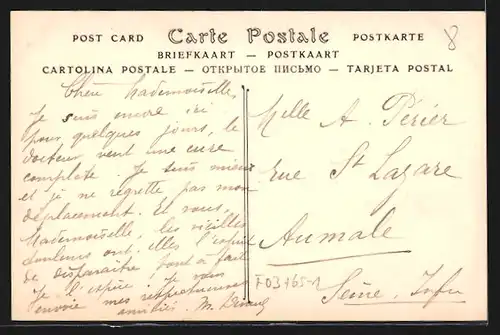 POST CARD Carte Postale POSTKARTE
BRIEFKAART — POSTKAART
CARTOLINA POSTALE — ОТКРЫТОЕ ПИСЬМО — TARJETA POSTAL
8
Chère Mademoiselle,
Je suis encore ici
pour quelques jours, le
docteur veut une cure
complète. Je suis mieux
et je ne regrette pas mon
déplacement. Et vous,
Mademoiselle, les vieilles
douleurs ont-elles l'esprit
de disparaître, tout à fait
Je l'espère. Je vous
envoie mes respectueuses
amitiés. M.
Melle A. Périer
rue St Lazare
Aumale
F03465-1
Seine, Infre